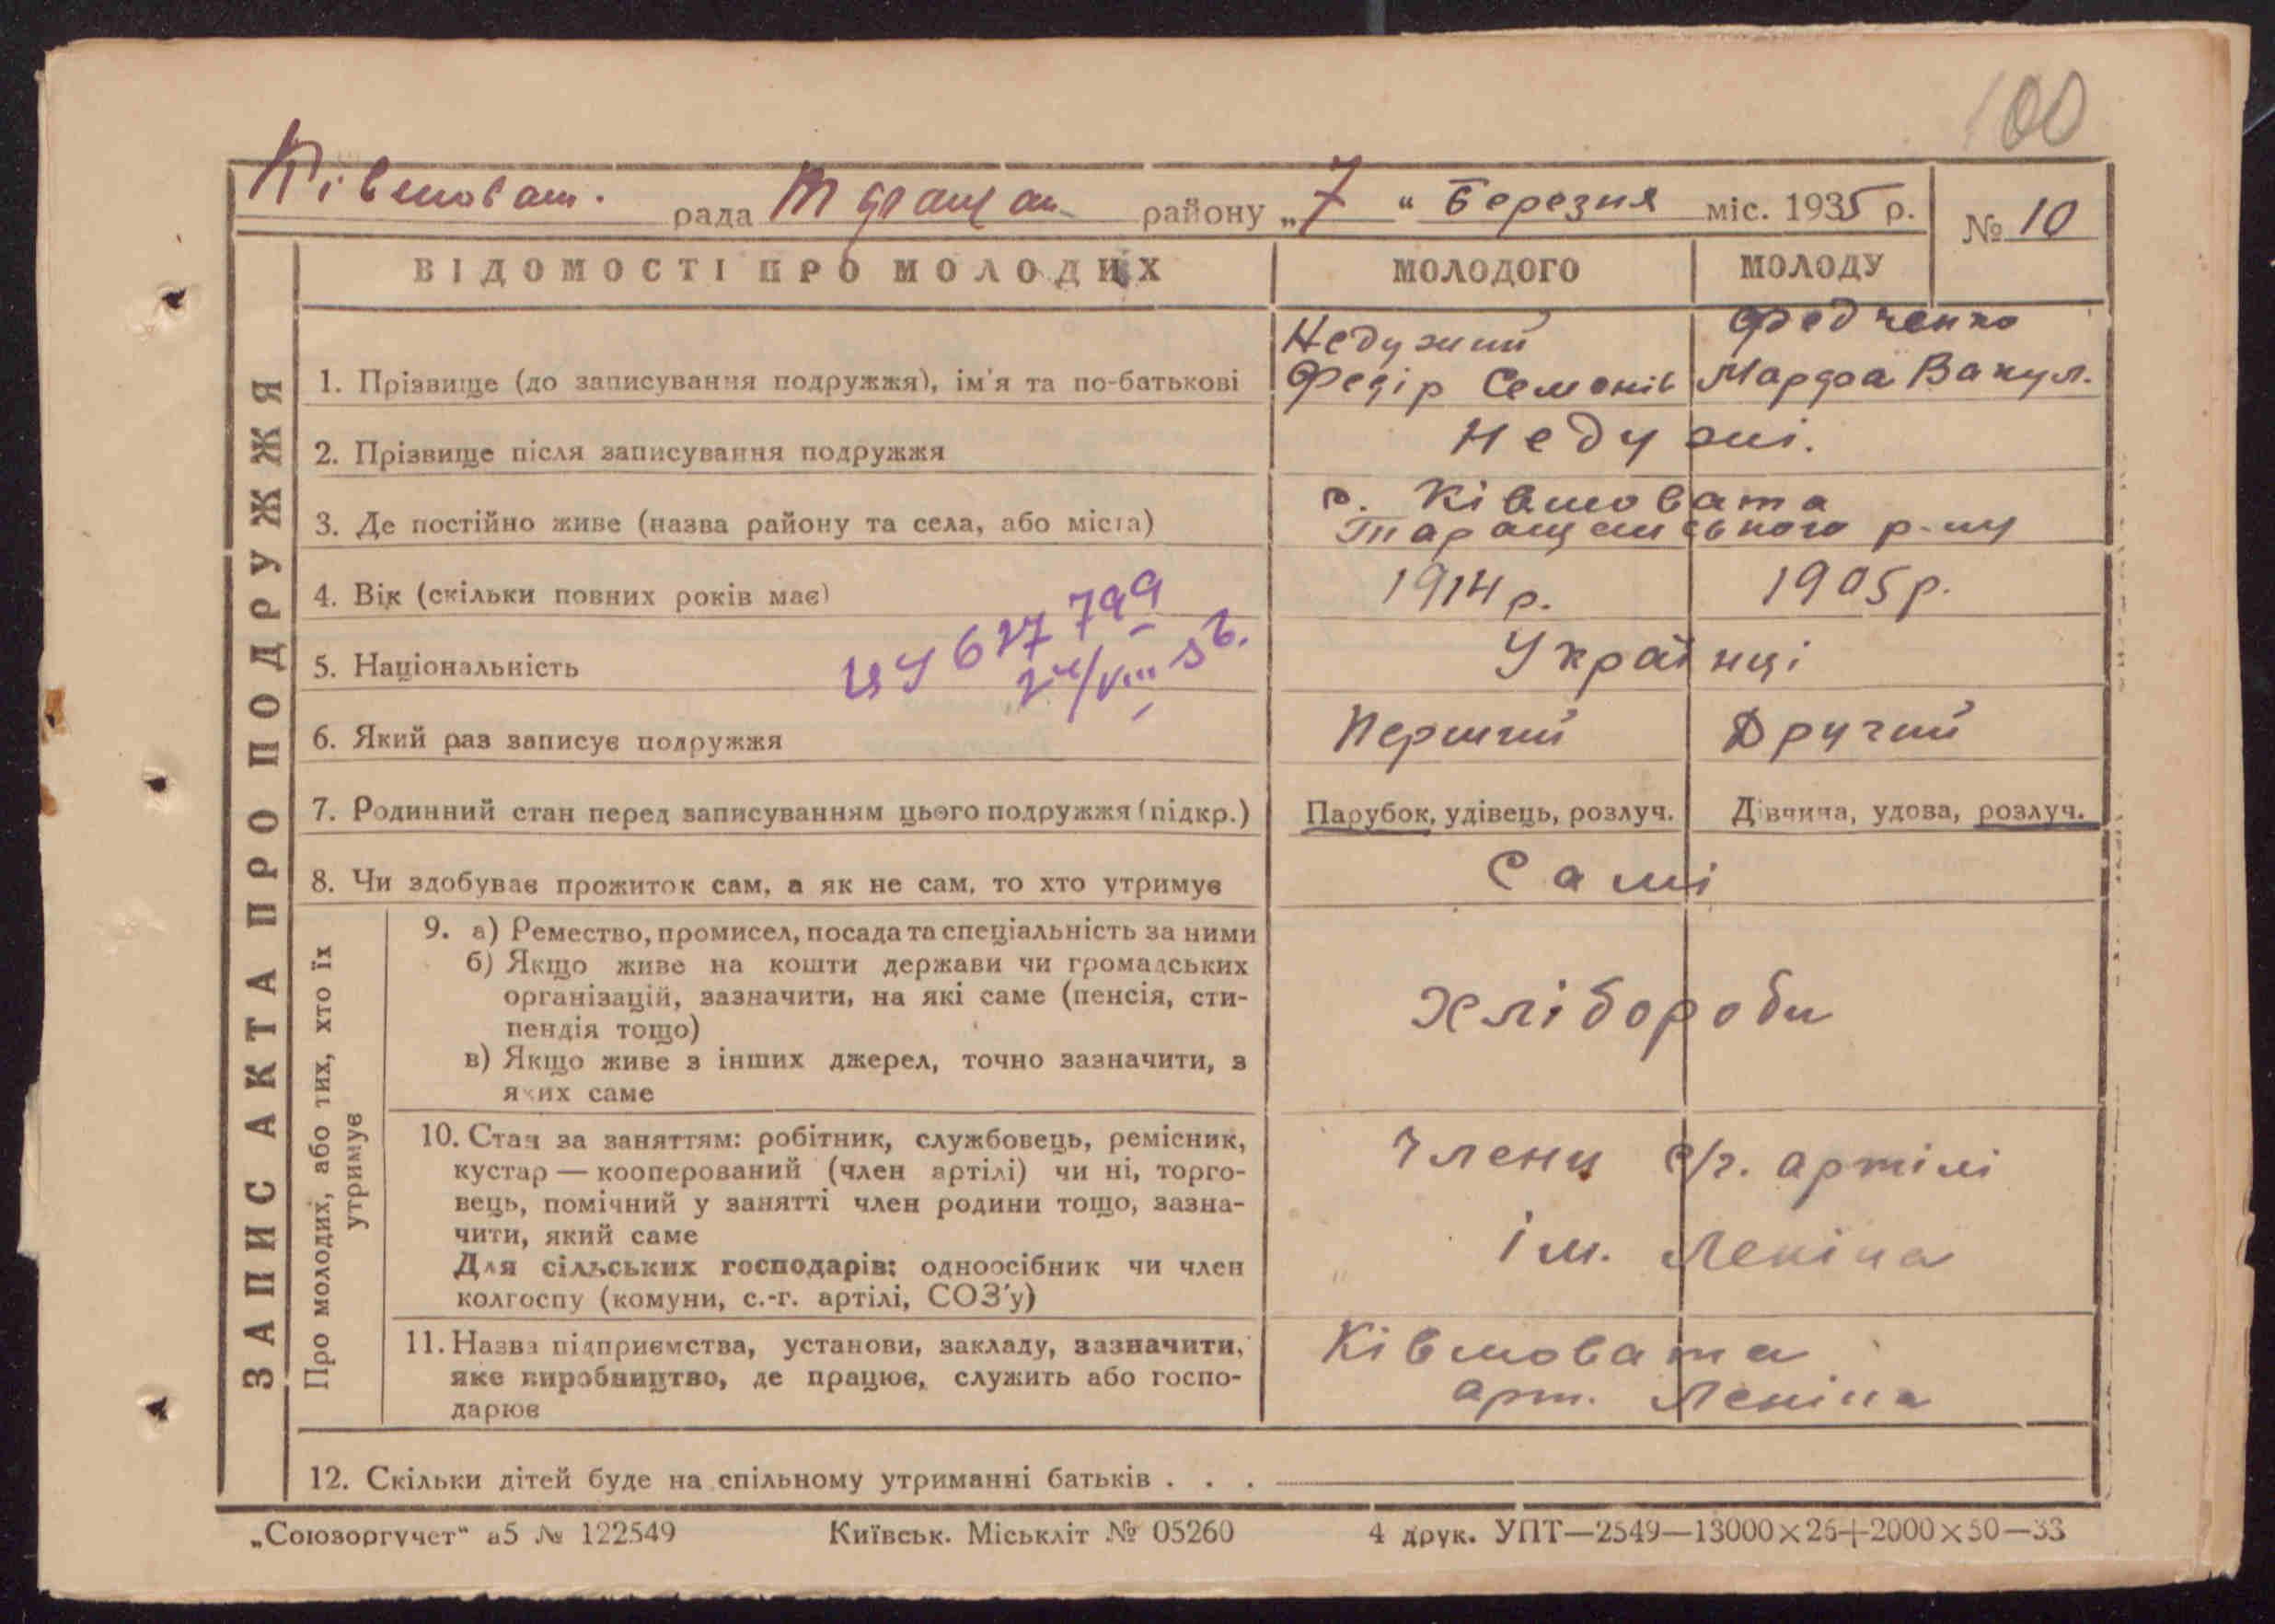 100
Ківшоват. рада Таращан. району „7“ Березня міс. 1935 р. № 10
ЗАПИС АКТА ПРО ПОДРУЖЖЯ
ВІДОМОСТІ ПРО МОЛОДИХ МОЛОДОГО МОЛОДУ
Недужий Федченко
1. Прізвище (до записування подружжя), ім'я та по-батькові Федір Семенів Марфа Вакул.
2. Прізвище після записування подружжя Недужі.
с. Ківшовата
3. Де постійно живе (назва району та села, або міста) Таращенського р-ну
4. Вік (скільки повних років має) 1914 р. 1905 р.
5. Національність Українці
6. Який раз записує подружжя Перший Другий
7. Родинний стан перед записуванням цього подружжя (підкр.) Парубок, удівець, розлуч. Дівчина, удова, розлуч.
8. Чи здобуває прожиток сам, а як не сам, то хто утримує Самі
Про молодих, або тих, хто їх
утримує
9. а) Ремество, промисел, посада та спеціальність за ними
б) Якщо живе на кошти держави чи громадських
організацій, зазначити, на які саме (пенсія, сти-
пендія тощо)
в) Якщо живе з інших джерел, точно зазначити, з
яких саме
Хлібороби
10. Стан за заняттям: робітник, службовець, ремісник,
кустар — кооперований (член артілі) чи ні, торго-
вець, помічний у занятті член родини тощо, зазна-
чити, який саме
Для сільських господарів: одноосібник чи член
колгоспу (комуни, с.-г. артілі, СОЗ'у)
Члени с/г. артілі
ім. Леніна
11. Назва підприємства, установи, закладу, зазначити,
яке виробництво, де працює, служить або госпо-
дарює
Ківшовата
арт. Леніна
12. Скільки дітей буде на спільному утриманні батьків . . .
„Союзоргучет“ а5 № 122549 Київськ. Міськліт № 05260 4 друк. УПТ—2549—13000×26+2000×50—33